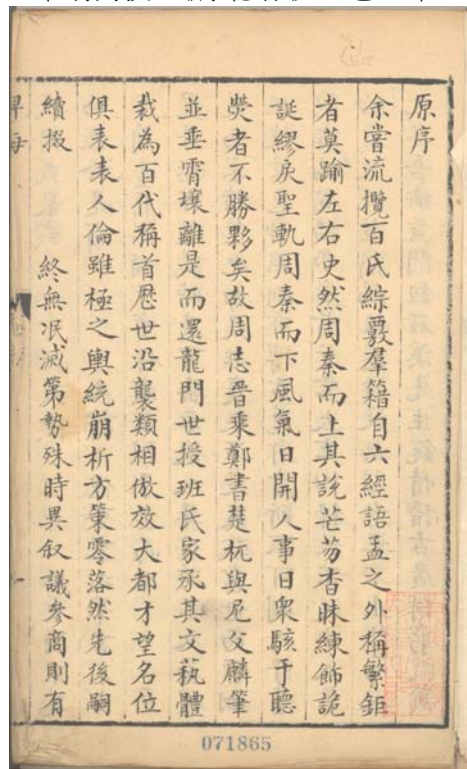 原序
余嘗流攬百氏綜覈羣籍自六經語孟之外稱繁鉅
者莫踰左右史然周秦而上其說芒芴杳昧練飾詭
誕繆戾聖軌周秦而下風氣日開人事日衆駭于聽
熒者不勝夥矣故周志晉乘鄭書楚杌與尼父麟筆
並垂霄壤離是而還龍門世授班氏家承其文藝體
裁為百代稱首歷世沿襲類相倣效大都才望名位
俱表表人倫雖極之輿統崩析方策零落然先後嗣
續掇 終無泯滅第勢殊時異叙議參商則有
稗海
071865